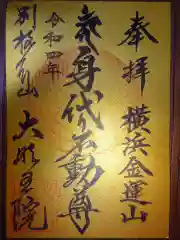 奉拝 横浜金運山
身代不動尊
令和四年
別格本山
大明王院